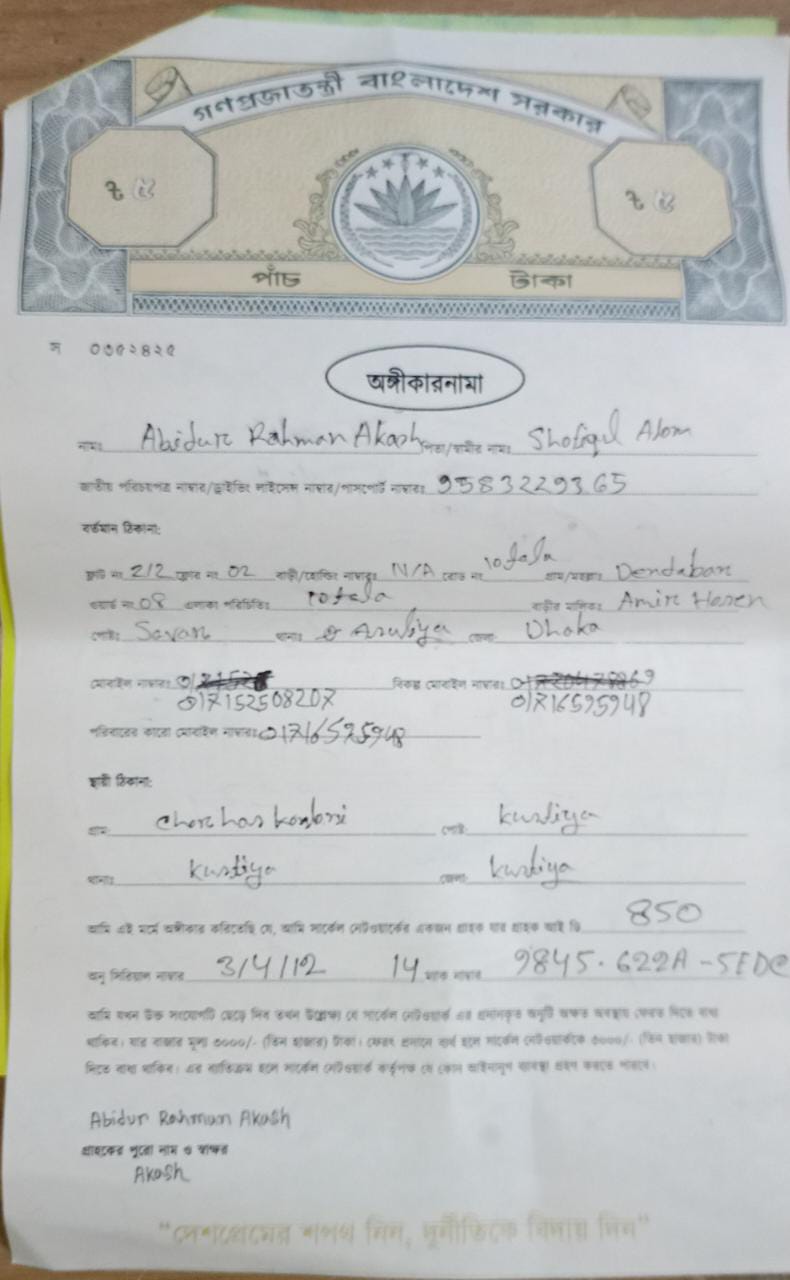 গণপ্রজাতন্ত্রী বাংলাদেশ সরকার
৳ ৫ ৳ ৫
পাঁচ টাকা
স ০৩৫২৪২৫
অঙ্গীকারনামা
নামঃ Abidur Rahman Akash পিতা/স্বামীর নামঃ Shofiqul Alom
জাতীয় পরিচয়পত্র নাম্বার/ড্রাইভিং লাইসেন্স নাম্বার/পাসপোর্ট নাম্বারঃ 9583229365
বর্তমান ঠিকানা:
ফ্লাট নং 2/2 ফ্লোর নং 02 বাড়ী/হোল্ডিং নাম্বারঃ N/A রোড নং 10 tala গ্রাম/মহল্লাঃ Dendabar
ওয়ার্ড নং 08 এলাকা পরিচিতিঃ 10 tala বাড়ীর মালিকঃ Amir Hosen
পোষ্টঃ Savar থানাঃ Asuliya জেলা Dhaka
মোবাইল নাম্বারঃ 01 বিকল্প মোবাইল নাম্বারঃ
017152508207 01716595948
পরিবারের কারো মোবাইল নাম্বারঃ 01716595948
স্থায়ী ঠিকানা:
গ্রামঃ পোষ্টঃ Kustiya
থানাঃ Kustiya জেলাঃ Kustiya
আমি এই মর্মে অঙ্গীকার করিতেছি যে, আমি সার্কেল নেটওয়ার্কের একজন গ্রাহক যার গ্রাহক আই ডি 850
অনু সিরিয়াল নাম্বার 3/4/12 14 ম্যাক নাম্বার 9845.622A-5EDC
আমি যখন উক্ত সংযোগটি ছেড়ে দিব তখন উল্লেখ্য যে সার্কেল নেটওয়ার্ক এর প্রদানকৃত অনুটি অক্ষত অবস্থায় ফেরত দিতে বাধ্য
থাকিব। যার বাজার মূল্য ৩০০০/- (তিন হাজার) টাকা। ফেরৎ প্রদানে ব্যর্থ হলে সার্কেল নেটওয়ার্ককে ৩০০০/- (তিন হাজার) টাকা
দিতে বাধ্য থাকিব। এর ব্যতিক্রম হলে সার্কেল নেটওয়ার্ক কর্তৃপক্ষ যে কোন আইনানুগ ব্যবস্থা গ্রহণ করতে পারবে।
Abidur Rahman Akash
গ্রাহকের পুরো নাম ও স্বাক্ষর
Akash
"দেশপ্রেমের শপথ নিন, দুর্নীতিকে বিদায় দিন"